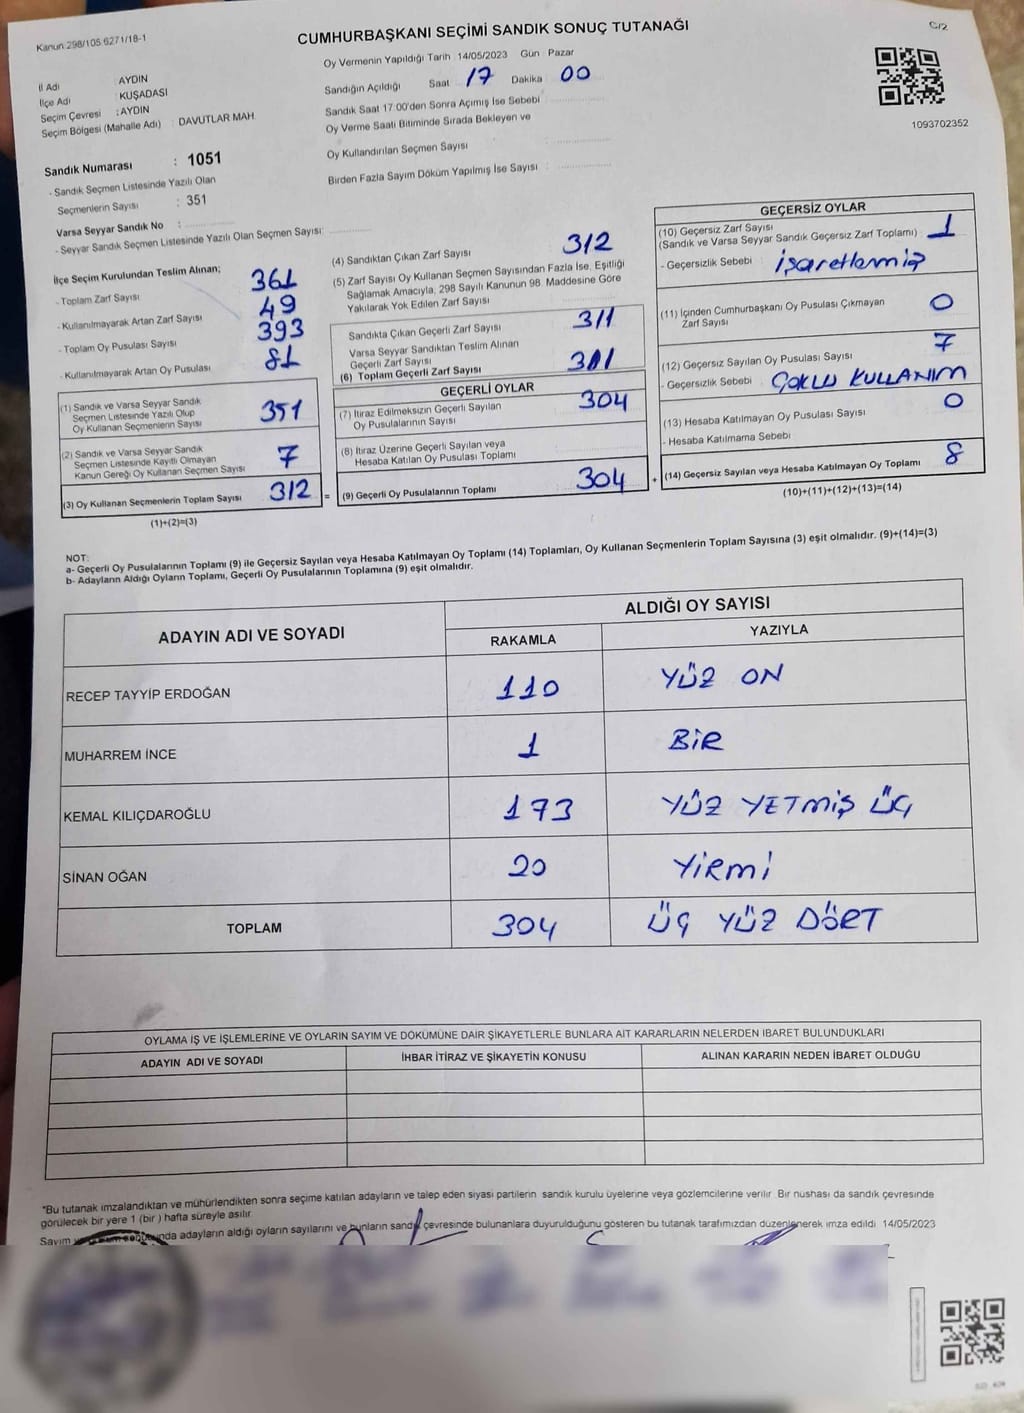 Kanun 298/105 6271/18-1
CUMHURBAŞKANI SEÇİMİ SANDIK SONUÇ TUTANAĞI
C/2
İl Adı : AYDIN
İlçe Adı : KUŞADASI
Seçim Çevresi : AYDIN
Seçim Bölgesi (Mahalle Adı) : DAVUTLAR MAH.
Sandık Numarası : 1051
- Sandık Seçmen Listesinde Yazılı Olan
Seçmenlerin Sayısı : 351
Varsa Seyyar Sandık No :
- Seyyar Sandık Seçmen Listesinde Yazılı Olan Seçmen Sayısı:
Oy Vermenin Yapıldığı Tarih 14/05/2023 Gün Pazar
Sandığın Açıldığı Saat 17 Dakika 00
Sandık Saat 17:00'den Sonra Açımış İse Sebebi
Oy Verme Saati Bitiminde Sırada Bekleyen ve
Oy Kullandırılan Seçmen Sayısı
Birden Fazla Sayım Döküm Yapılmış İse Sayısı
1093702352
İlçe Seçim Kurulundan Teslim Alınan;
- Toplam Zarf Sayısı 361
- Kullanılmayarak Artan Zarf Sayısı 49
- Toplam Oy Pusulası Sayısı 393
- Kullanılmayarak Artan Oy Pusulası 81
(1) Sandık ve Varsa Seyyar Sandık
Seçmen Listesinde Yazılı Olup
Oy Kullanan Seçmenlerin Sayısı 351
(2) Sandık ve Varsa Seyyar Sandık
Seçmen Listesinde Kayıtlı Olmayan
Kanun Gereği Oy Kullanan Seçmen Sayısı 7
(3) Oy Kullanan Seçmenlerin Toplam Sayısı 312 =
(1)+(2)=(3)
(4) Sandıktan Çıkan Zarf Sayısı 312
(5) Zarf Sayısı Oy Kullanan Seçmen Sayısından Fazla İse, Eşitliği
Sağlamak Amacıyla, 298 Sayılı Kanunun 98. Maddesine Göre
Yakılarak Yok Edilen Zarf Sayısı
Sandıkta Çıkan Geçerli Zarf Sayısı 311
Varsa Seyyar Sandıktan Teslim Alınan
Geçerli Zarf Sayısı
(6) Toplam Geçerli Zarf Sayısı 311
GEÇERLİ OYLAR
(7) İtiraz Edilmeksizin Geçerli Sayılan
Oy Pusulalarının Sayısı 304
(8) İtiraz Üzerine Geçerli Sayılan veya
Hesaba Katılan Oy Pusulası Toplamı
(9) Geçerli Oy Pusulalarının Toplamı 304 +
GEÇERSİZ OYLAR
(10) Geçersiz Zarf Sayısı
(Sandık ve Varsa Seyyar Sandık Geçersiz Zarf Toplamı) 1
- Geçersizlik Sebebi işaretlemiş
(11) İçinden Cumhurbaşkanı Oy Pusulası Çıkmayan
Zarf Sayısı 0
(12) Geçersiz Sayılan Oy Pusulası Sayısı 7
- Geçersizlik Sebebi ÇOKLU KULLANIM
(13) Hesaba Katılmayan Oy Pusulası Sayısı 0
- Hesaba Katılmama Sebebi
(14) Geçersiz Sayılan veya Hesaba Katılmayan Oy Toplamı 8
(10)+(11)+(12)+(13)=(14)
NOT:
a- Geçerli Oy Pusulalarının Toplamı (9) ile Geçersiz Sayılan veya Hesaba Katılmayan Oy Toplamı (14) Toplamları, Oy Kullanan Seçmenlerin Toplam Sayısına (3) eşit olmalıdır. (9)+(14)=(3)
b- Adayların Aldığı Oyların Toplamı, Geçerli Oy Pusulalarının Toplamına (9) eşit olmalıdır.
ADAYIN ADI VE SOYADI ALDIĞI OY SAYISI
RAKAMLA YAZIYLA
RECEP TAYYİP ERDOĞAN 110 YÜZ ON
MUHARREM İNCE 1 BİR
KEMAL KILIÇDAROĞLU 173 YÜZ YETMİŞ ÜÇ
SİNAN OĞAN 20 YİRMİ
TOPLAM 304 ÜÇ YÜZ DÖRT
OYLAMA İŞ VE İŞLEMLERİNE VE OYLARIN SAYIM VE DÖKÜMÜNE DAİR ŞİKAYETLERLE BUNLARA AİT KARARLARIN NELERDEN İBARET BULUNDUKLARI
ADAYIN ADI VE SOYADI İHBAR İTİRAZ VE ŞİKAYETİN KONUSU ALINAN KARARIN NEDEN İBARET OLDUĞU
*Bu tutanak imzalandıktan ve mühürlendikten sonra seçime katılan adayların ve talep eden siyasi partilerin sandık kurulu üyelerine veya gözlemcilerine verilir. Bir nüshası da sandık çevresinde
görülecek bir yere 1 (bir) hafta süreyle asılır.
Sayım adayların aldığı oyların sayılarını ve bunların sandık çevresinde bulunanlara duyurulduğunu gösteren bu tutanak tarafımızdan düzenlenerek imza edildi 14/05/2023